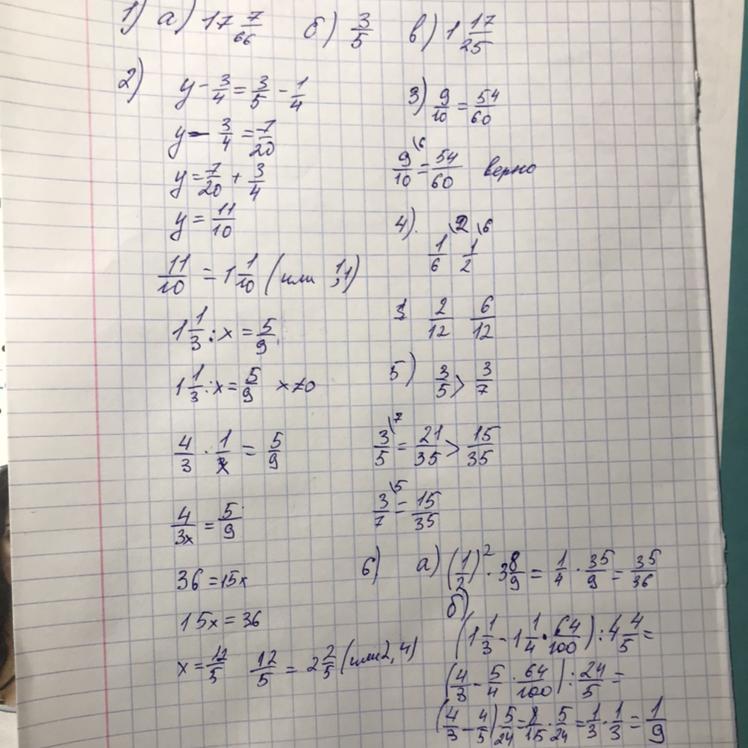 1) а) 17 7/66 б) 3/5 в) 1 17/25
2)
y - 3/4 = 3/5 - 1/4
y - 3/4 = 7/20
y = 7/20 + 3/4
y = 11/10
11/10 = 1 1/10 (или 1,1)
1 1/3 : x = 5/9
1 1/3 : x = 5/9 x≠0
4/3 · 1/x = 5/9
4/3x = 5/9
36 = 15x
15x = 36
x = 12/5 12/5 = 2 2/5 (или 2,4)
3) 9/10 = 54/60
9/10 \6 = 54/60 верно
4).
1/6 \2 1/2 \6
2/12 6/12
5) 3/5 > 3/7
3/5 \7 = 21/35 > 15/35
3/7 \5 = 15/35
6) а) (1/2)² · 3 8/9 = 1/4 · 35/9 = 35/36
б)
(1 1/3 - 1 1/4 · 64/100) : 4 4/5 =
(4/3 - 5/4 · 64/100) : 24/5 =
(4/3 - 4/5) 5/24 = 8/15 · 5/24 = 1/3 · 1/3 = 1/9